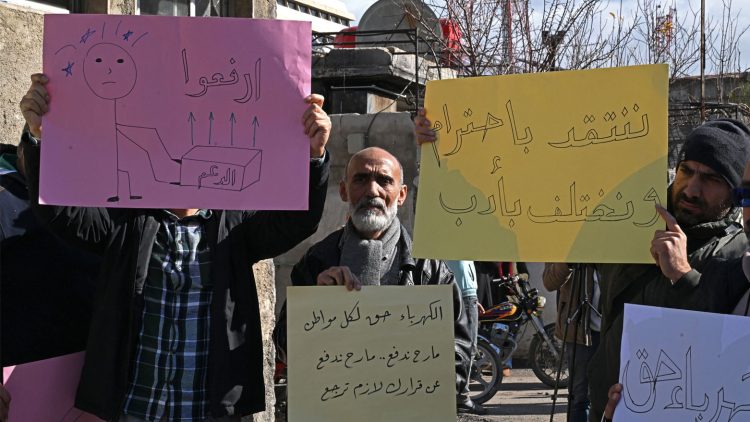 ارفعوا
الدعم
ننتقد باحترام
ونختلف بأدب
الكهرباء حق لكل مواطن
مارح ندفع.. مارح ندفع
عن قرارك لازم ترجع
كهرباء حق